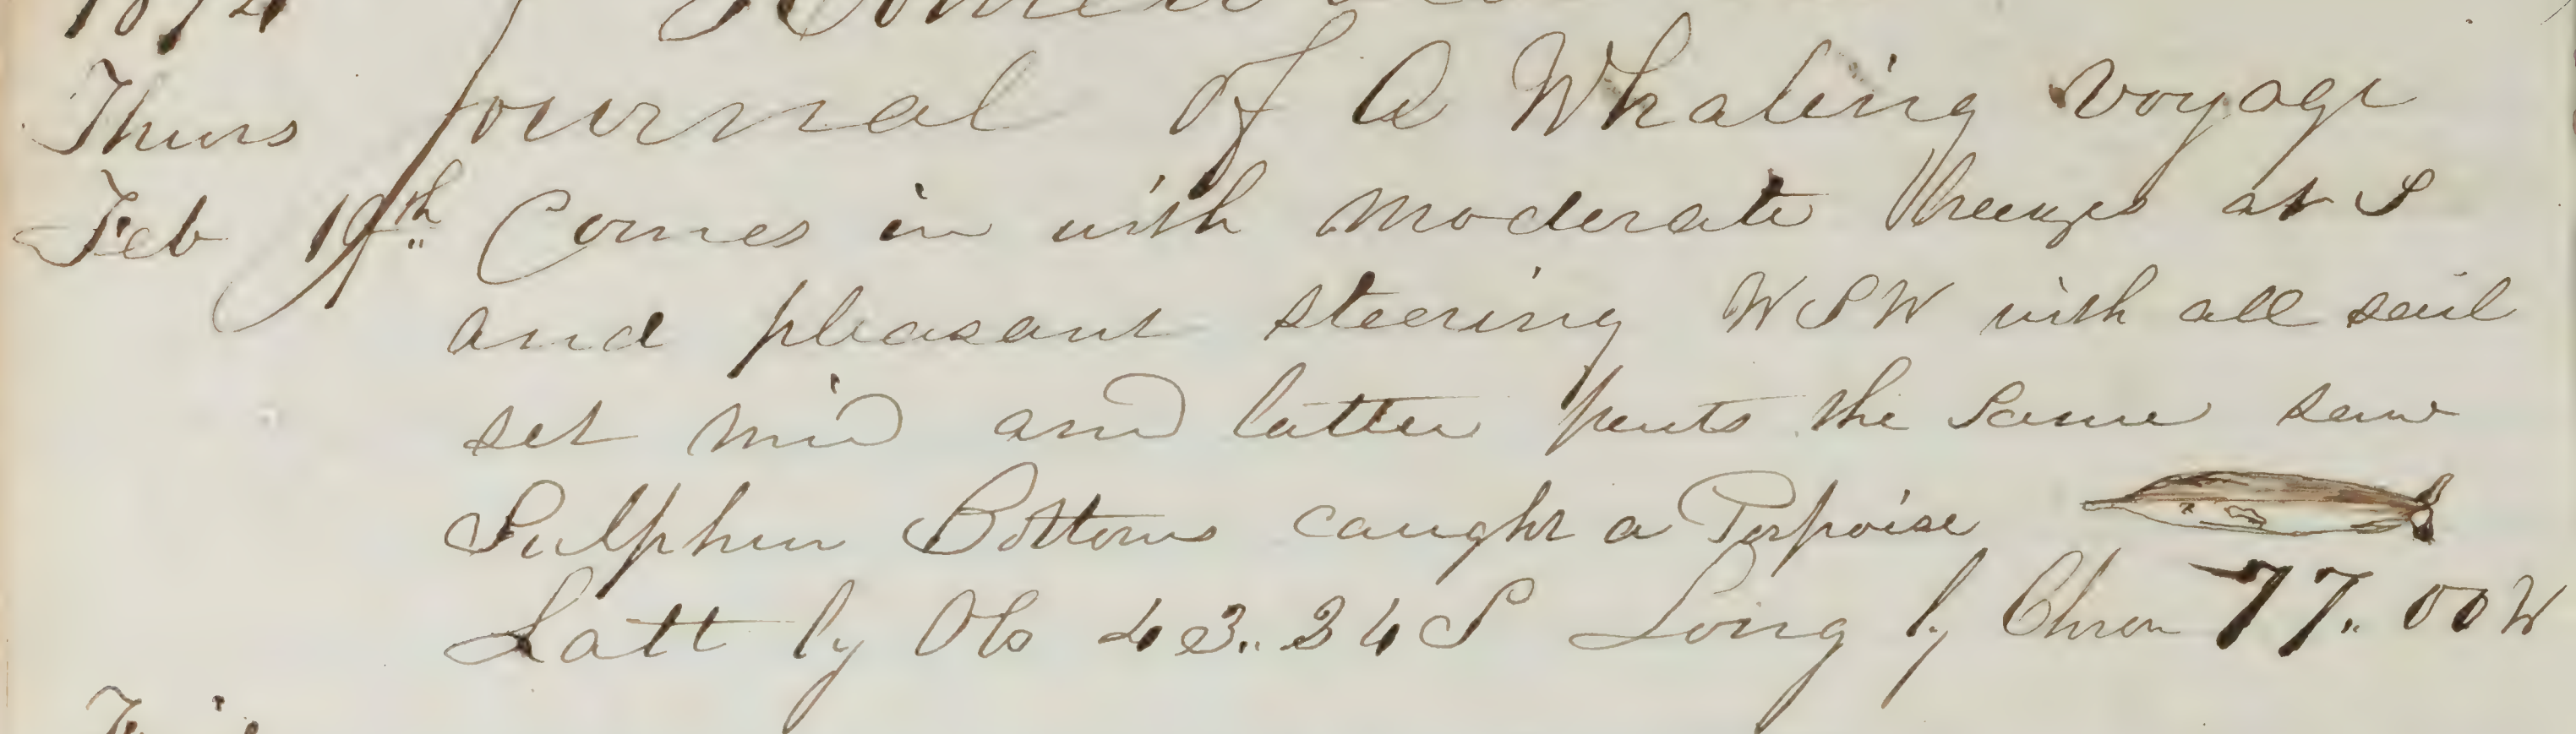 1874
Thurs Journal of A Whaling voyage
Feb 19th Comes in with moderate breezes at S
and pleasant steering W S W with all sail
set mid and latter parts the same saw
Sulphur Bottoms caught a Porpoise
Latt by Ob 43..34 S Long by Chron 77..00 W